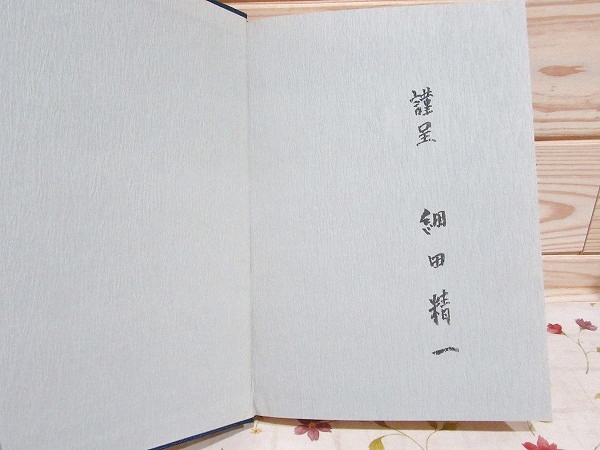 謹呈 細田精一